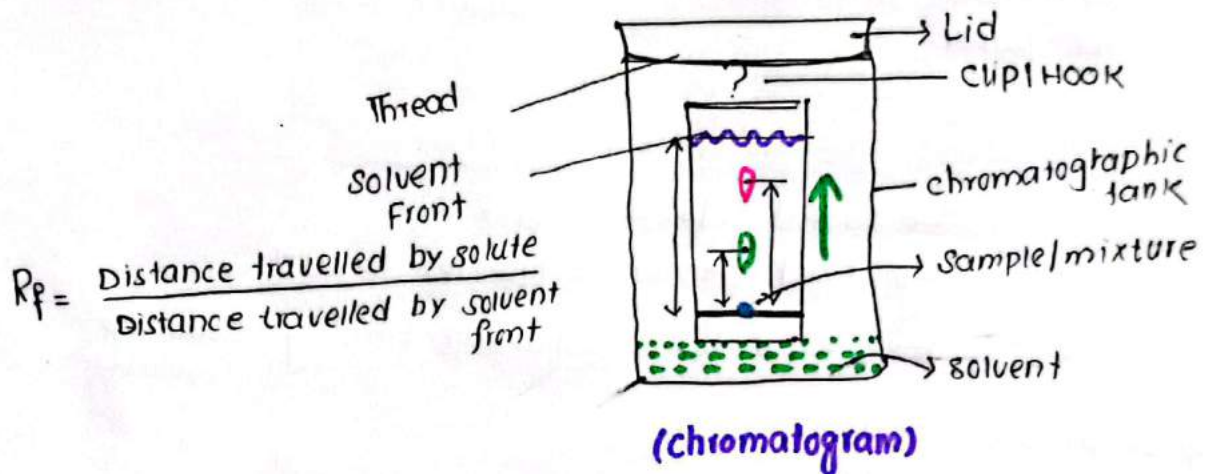 Lid
Thread
?
CLIP/HOOK
Solvent
Front
chromatographic
tank
Rf = Distance travelled by solute
Distance travelled by solvent
front
Sample/mixture
solvent
(chromatogram)